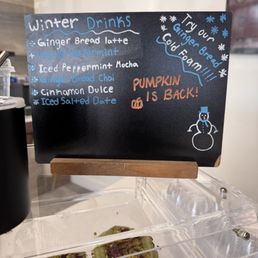 Winter Drinks
Ginger Bread latte
+ Peppermint
Iced Peppermint Mocha
Ginger Bread Chai
Cinnamon Dulce
Iced Salted Date
Try our
Ginger Bread
Cold Foam!!!!
PUMPKIN
IS BACK!